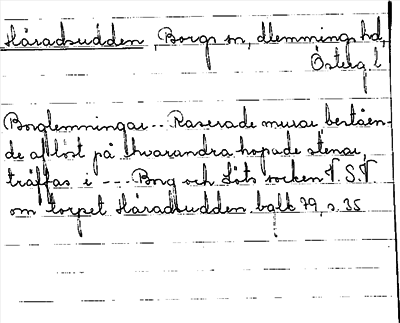 Häradsudden, Borgs sn, Memmings hd,
Österg l
Borglemningar... Raserade murar bestäen-
de af löst på hvarandra hopade stenar,
träffas i --- Borg och Löts socken V. S. V
om torpet Häradsudden. bglt 79, s. 35